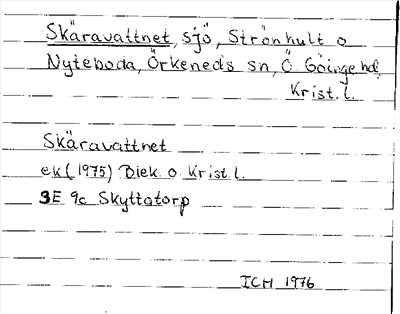 Skäravattnet, sjö, Strönhult o
Nyteboda, Örkeneds sn, Ö. Göinge hd,
Krist. l.
Skäravattnet
ek (1975) Blek. o Krist. l.
3E 9c Skyttatorp
ICH 1976